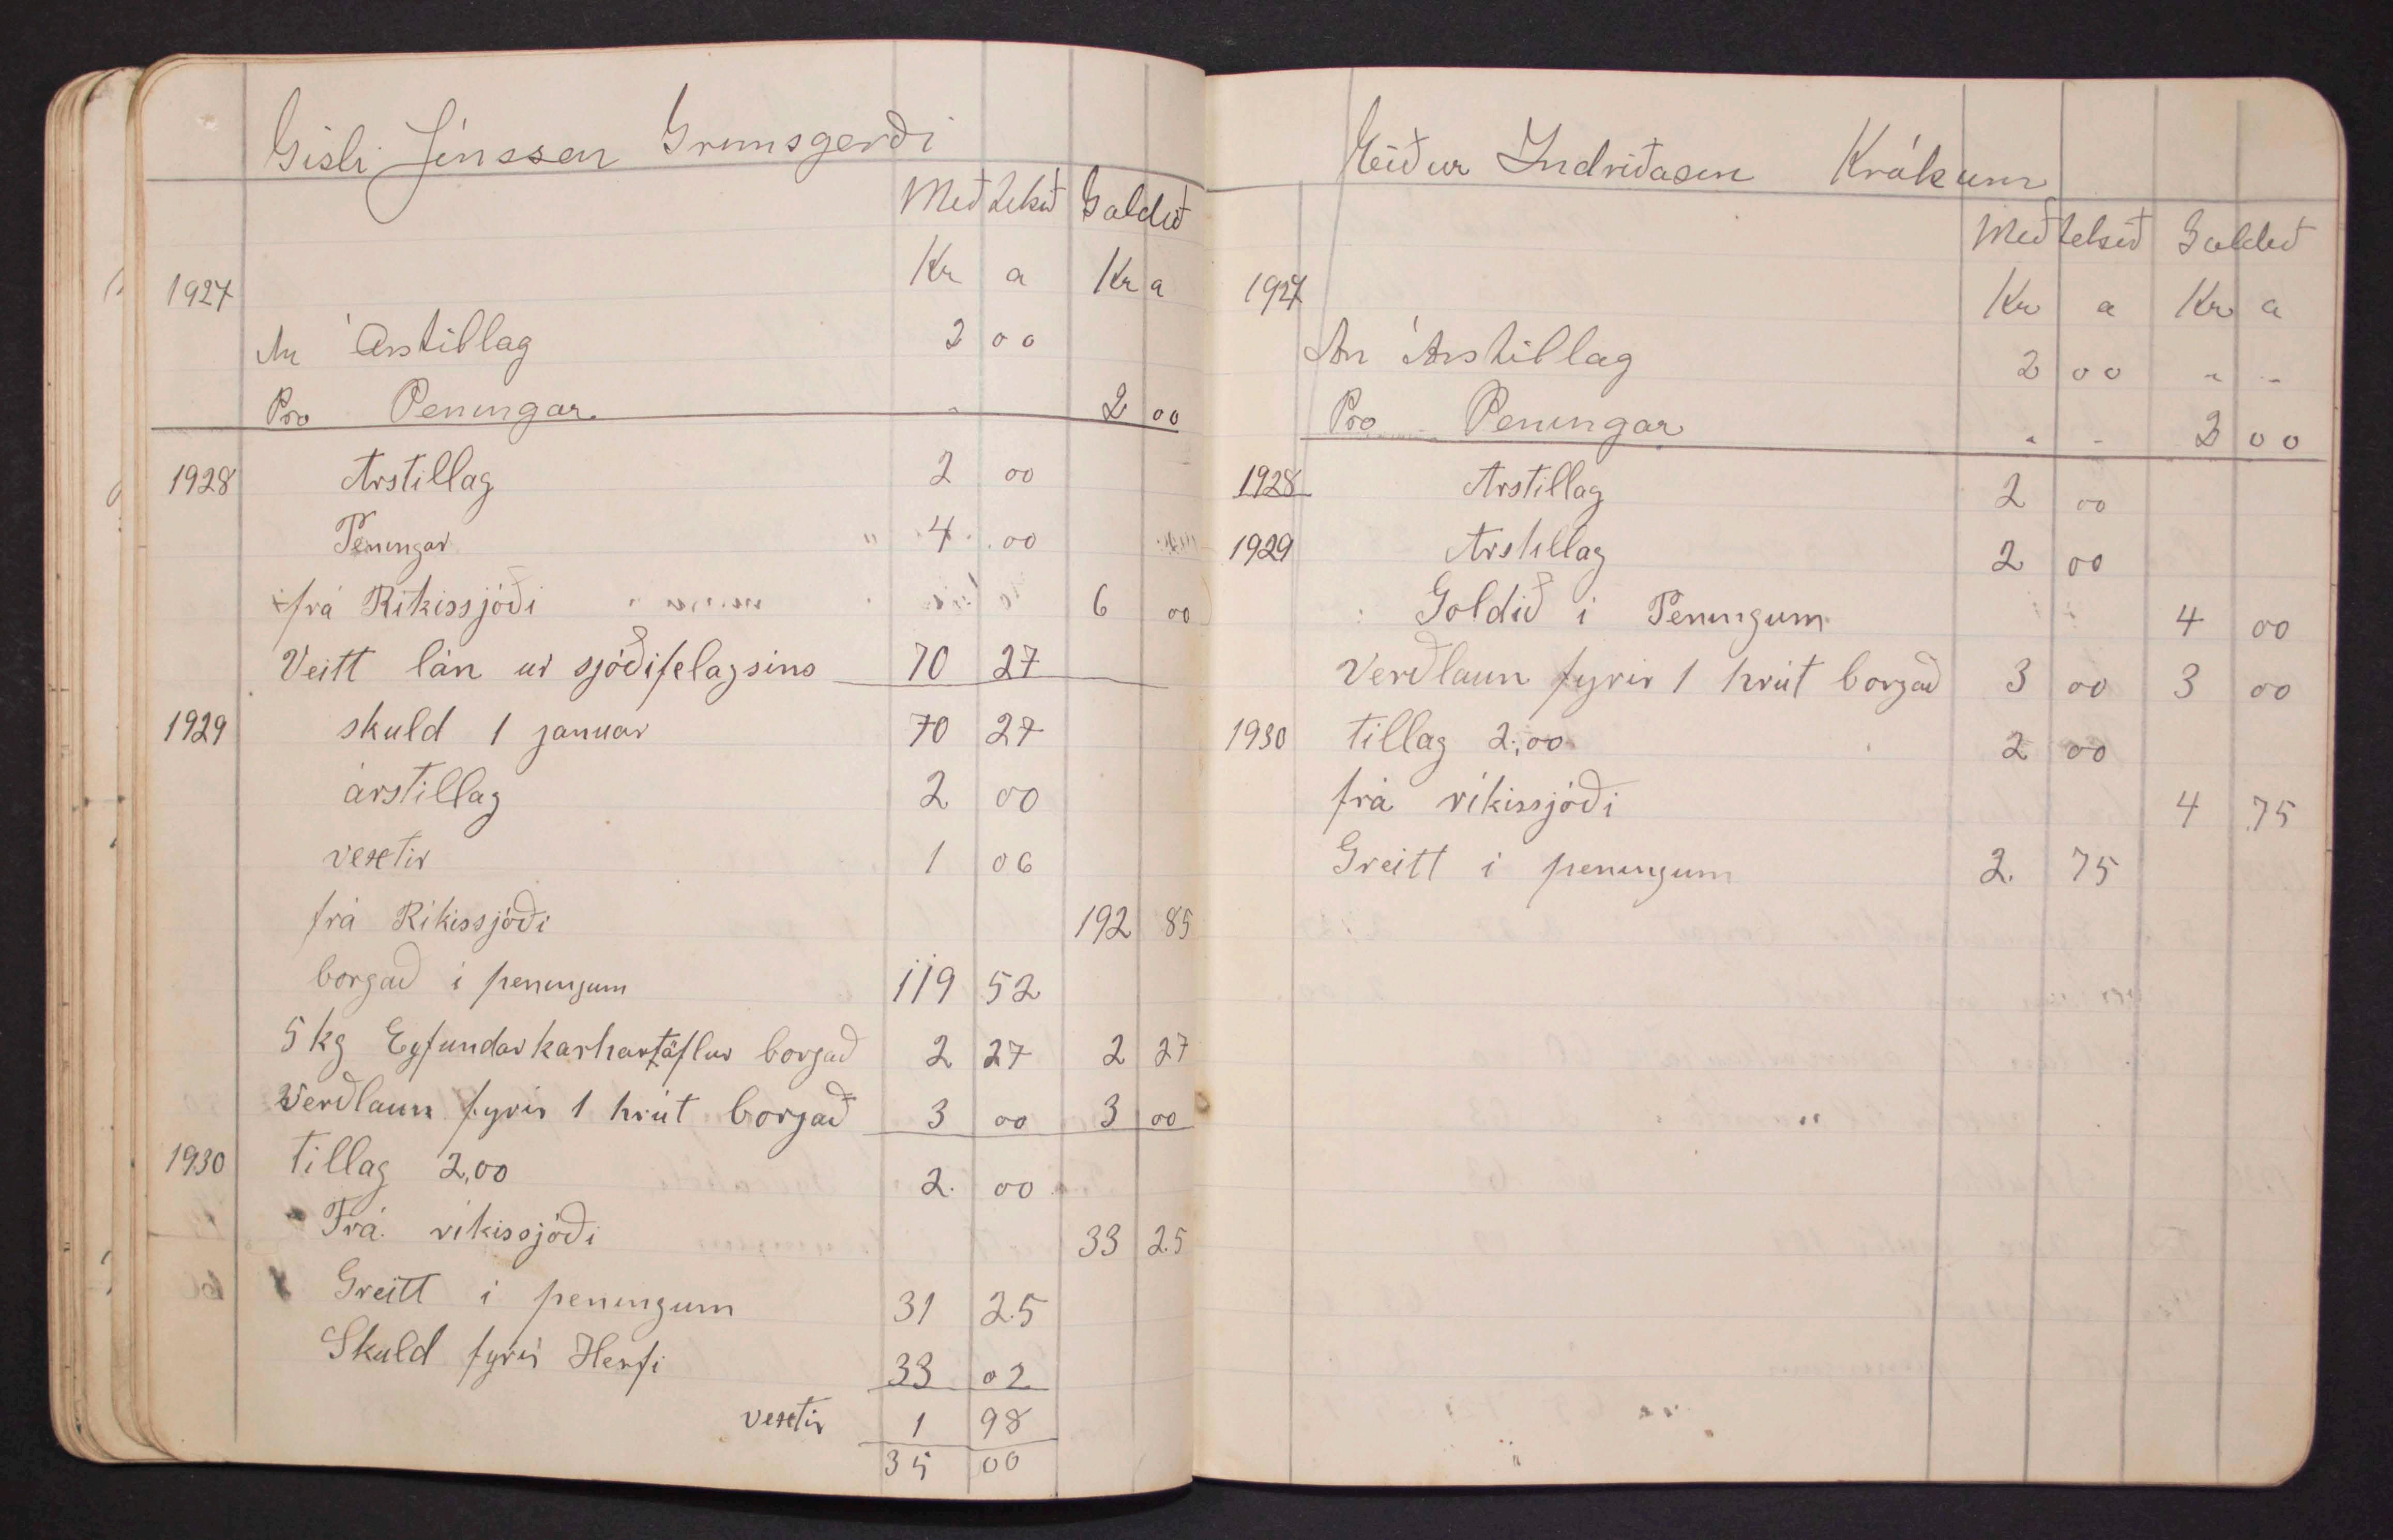 Gisli Jónsson Grimsgerði
Meðtekið Goldið
1927 Kr a Kr a
An Árstillag 2 00
Pro Peningar 2 00
1928 Arstillag 2 00
Peningar " 4 00
frá Rikissjóði 6 00
Veitt lán úr sjóðifelagsins 70 27
1929 skuld 1 januar 70 27
árstillag 2 00
vextir 1 06
frá Rikissjóði 192 85
borgað i peningum 119 52
5 kg Eyfundarkarhartöflur borgað 2 27 2 27
Verðlaun fyrir 1 hrút borgað 3 00 3 00
1930 tillag 2,00 2. 00
Frá rikissjóði 33 25
Greitt i peningum 31 25
Skuld fyrir Herfi 33 02
vextir 1 98
35 00
Eiður Indriðason Krákum
Meðtekið Goldið
1927 Kr a Kr a
An Árstillag 2 00 " -
Pro Peningar " - 2 00
1928 Arstillag 2 00
1929 Arstillag 2 00
Goldið i Peningum 4 00
Verðlaun fyrir 1 hrút borgað 3 00 3 00
1930 tillag 2,00 2 00
frá rikissjóði 4 75
Greitt i peningum 2. 75